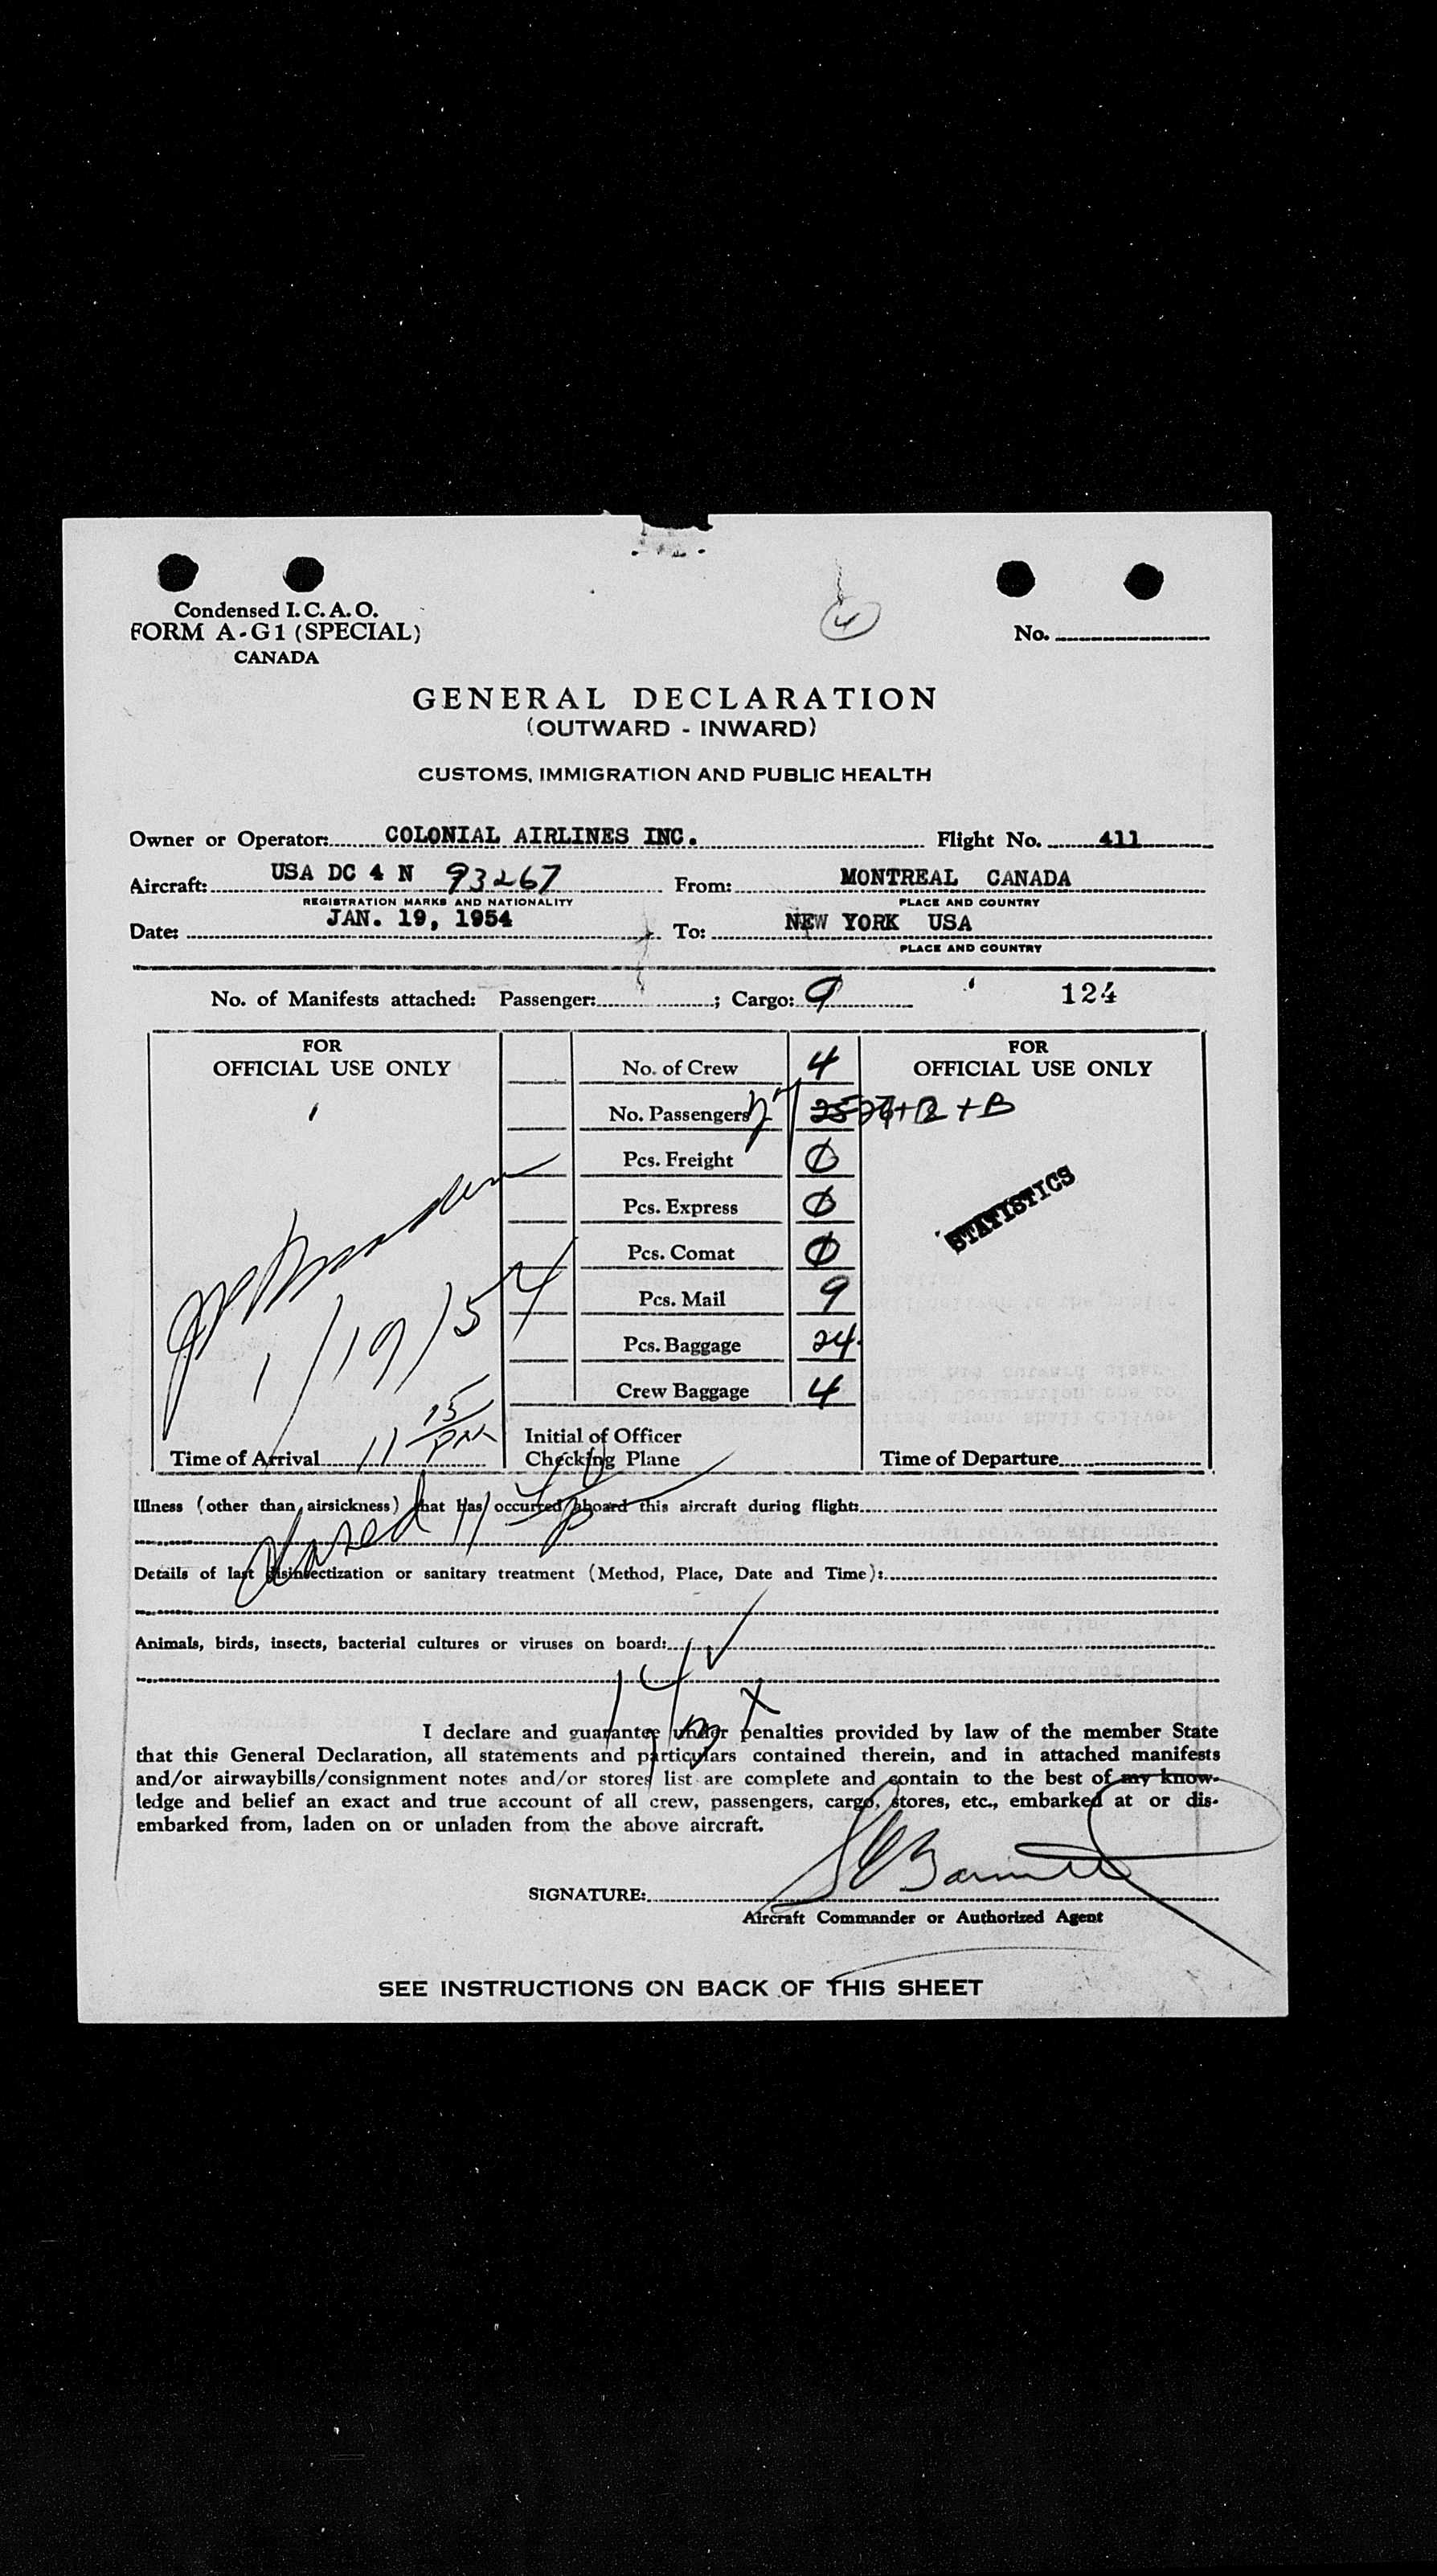 Condensed I. C. A. O.
FORM A-G1 (SPECIAL)
CANADA
4
No.
GENERAL DECLARATION
(OUTWARD - INWARD)
CUSTOMS, IMMIGRATION AND PUBLIC HEALTH
Owner or Operator: COLONIAL AIRLINES INC. Flight No. 411
Aircraft: USA DC 4 N 93267 From: MONTREAL CANADA
REGISTRATION MARKS AND NATIONALITY PLACE AND COUNTRY
Date: JAN. 19, 1954 To: NEW YORK USA
PLACE AND COUNTRY
No. of Manifests attached: Passenger: ; Cargo: 9 124
FOR OFFICIAL USE ONLY
No. of Crew 4
No. Passengers 27 25 + B
Pcs. Freight 0
Pcs. Express 0
Pcs. Comat 0
Pcs. Mail 9
Pcs. Baggage 24
Crew Baggage 4
1/19/54
Time of Arrival 11 15 PM
Initial of Officer
Checking Plane
FOR OFFICIAL USE ONLY
STATISTICS
Time of Departure
Illness (other than airsickness) that has occurred aboard this aircraft during flight:
Details of last disinsectization or sanitary treatment (Method, Place, Date and Time):
Animals, birds, insects, bacterial cultures or viruses on board:
I declare and guarantee under penalties provided by law of the member State
that this General Declaration, all statements and particulars contained therein, and in attached manifests
and/or airwaybills/consignment notes and/or stores list are complete and contain to the best of my know-
ledge and belief an exact and true account of all crew, passengers, cargo, stores, etc., embarked at or dis-
embarked from, laden on or unladen from the above aircraft.
SIGNATURE:
Aircraft Commander or Authorized Agent
SEE INSTRUCTIONS ON BACK OF THIS SHEET